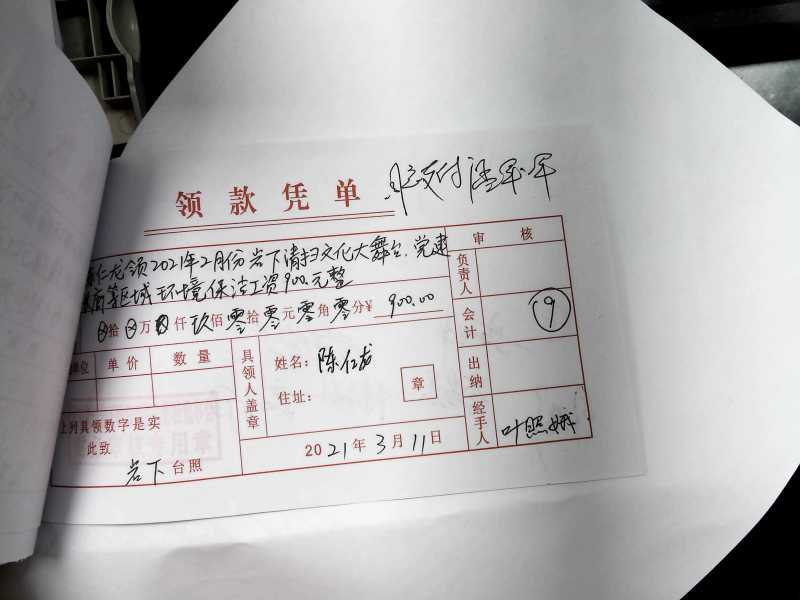 领款凭单
仁龙领2021年2月份岩下清扫文化大舞台、党建
等区域环境保洁工资900元整
拾 万 仟 玖佰零拾零元零角零分¥ 900.00
审核
负责人
会计 9
出纳
经手人 叶照娥
单价 数量
具领人盖章
姓名: 陈仁龙
住址: 章
上列具领数字是实
此致
岩下台照
2021年3月11日